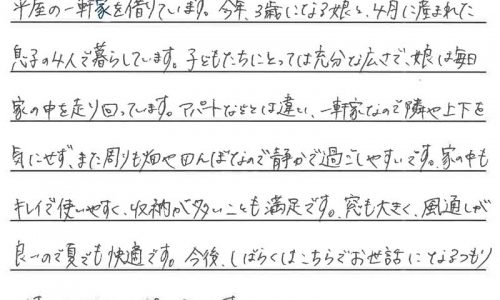 平屋の一軒家を借りています。今年、3歳になる娘と、4月に産まれた
息子の4人で暮らしています。子どもたちにとっては充分な広さで、娘は毎日
家の中を走り回っています。アパートなどとは違い、一軒家なので隣や上下を
気にせず、また周りも畑や田んぼなので静かで過ごしやすいです。家の中も
キレイで使いやすく、収納が多いことも満足です。窓も大きく、風通しが
良いので夏でも快適です。今後、しばらくはこちらでお世話になるつもり